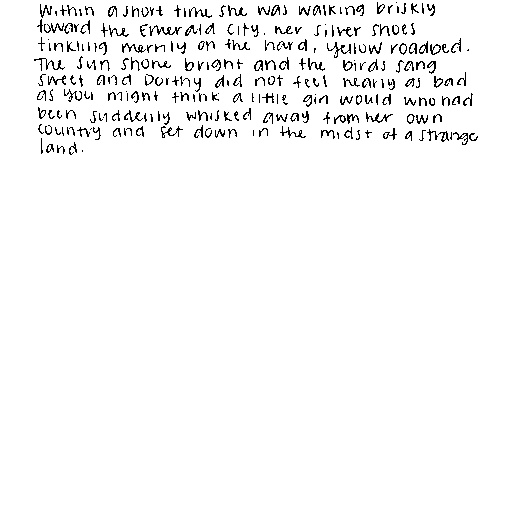 Within a short time she was walking briskly
toward the Emerald City, her silver shoes
tinkling merrily on the hard, yellow roadbed.
The sun shone bright and the birds sang
sweet and Dorthy did not feel nearly as bad
as you might think a little girl would who had
been suddenly whisked away from her own
country and set down in the midst of a strange
land.